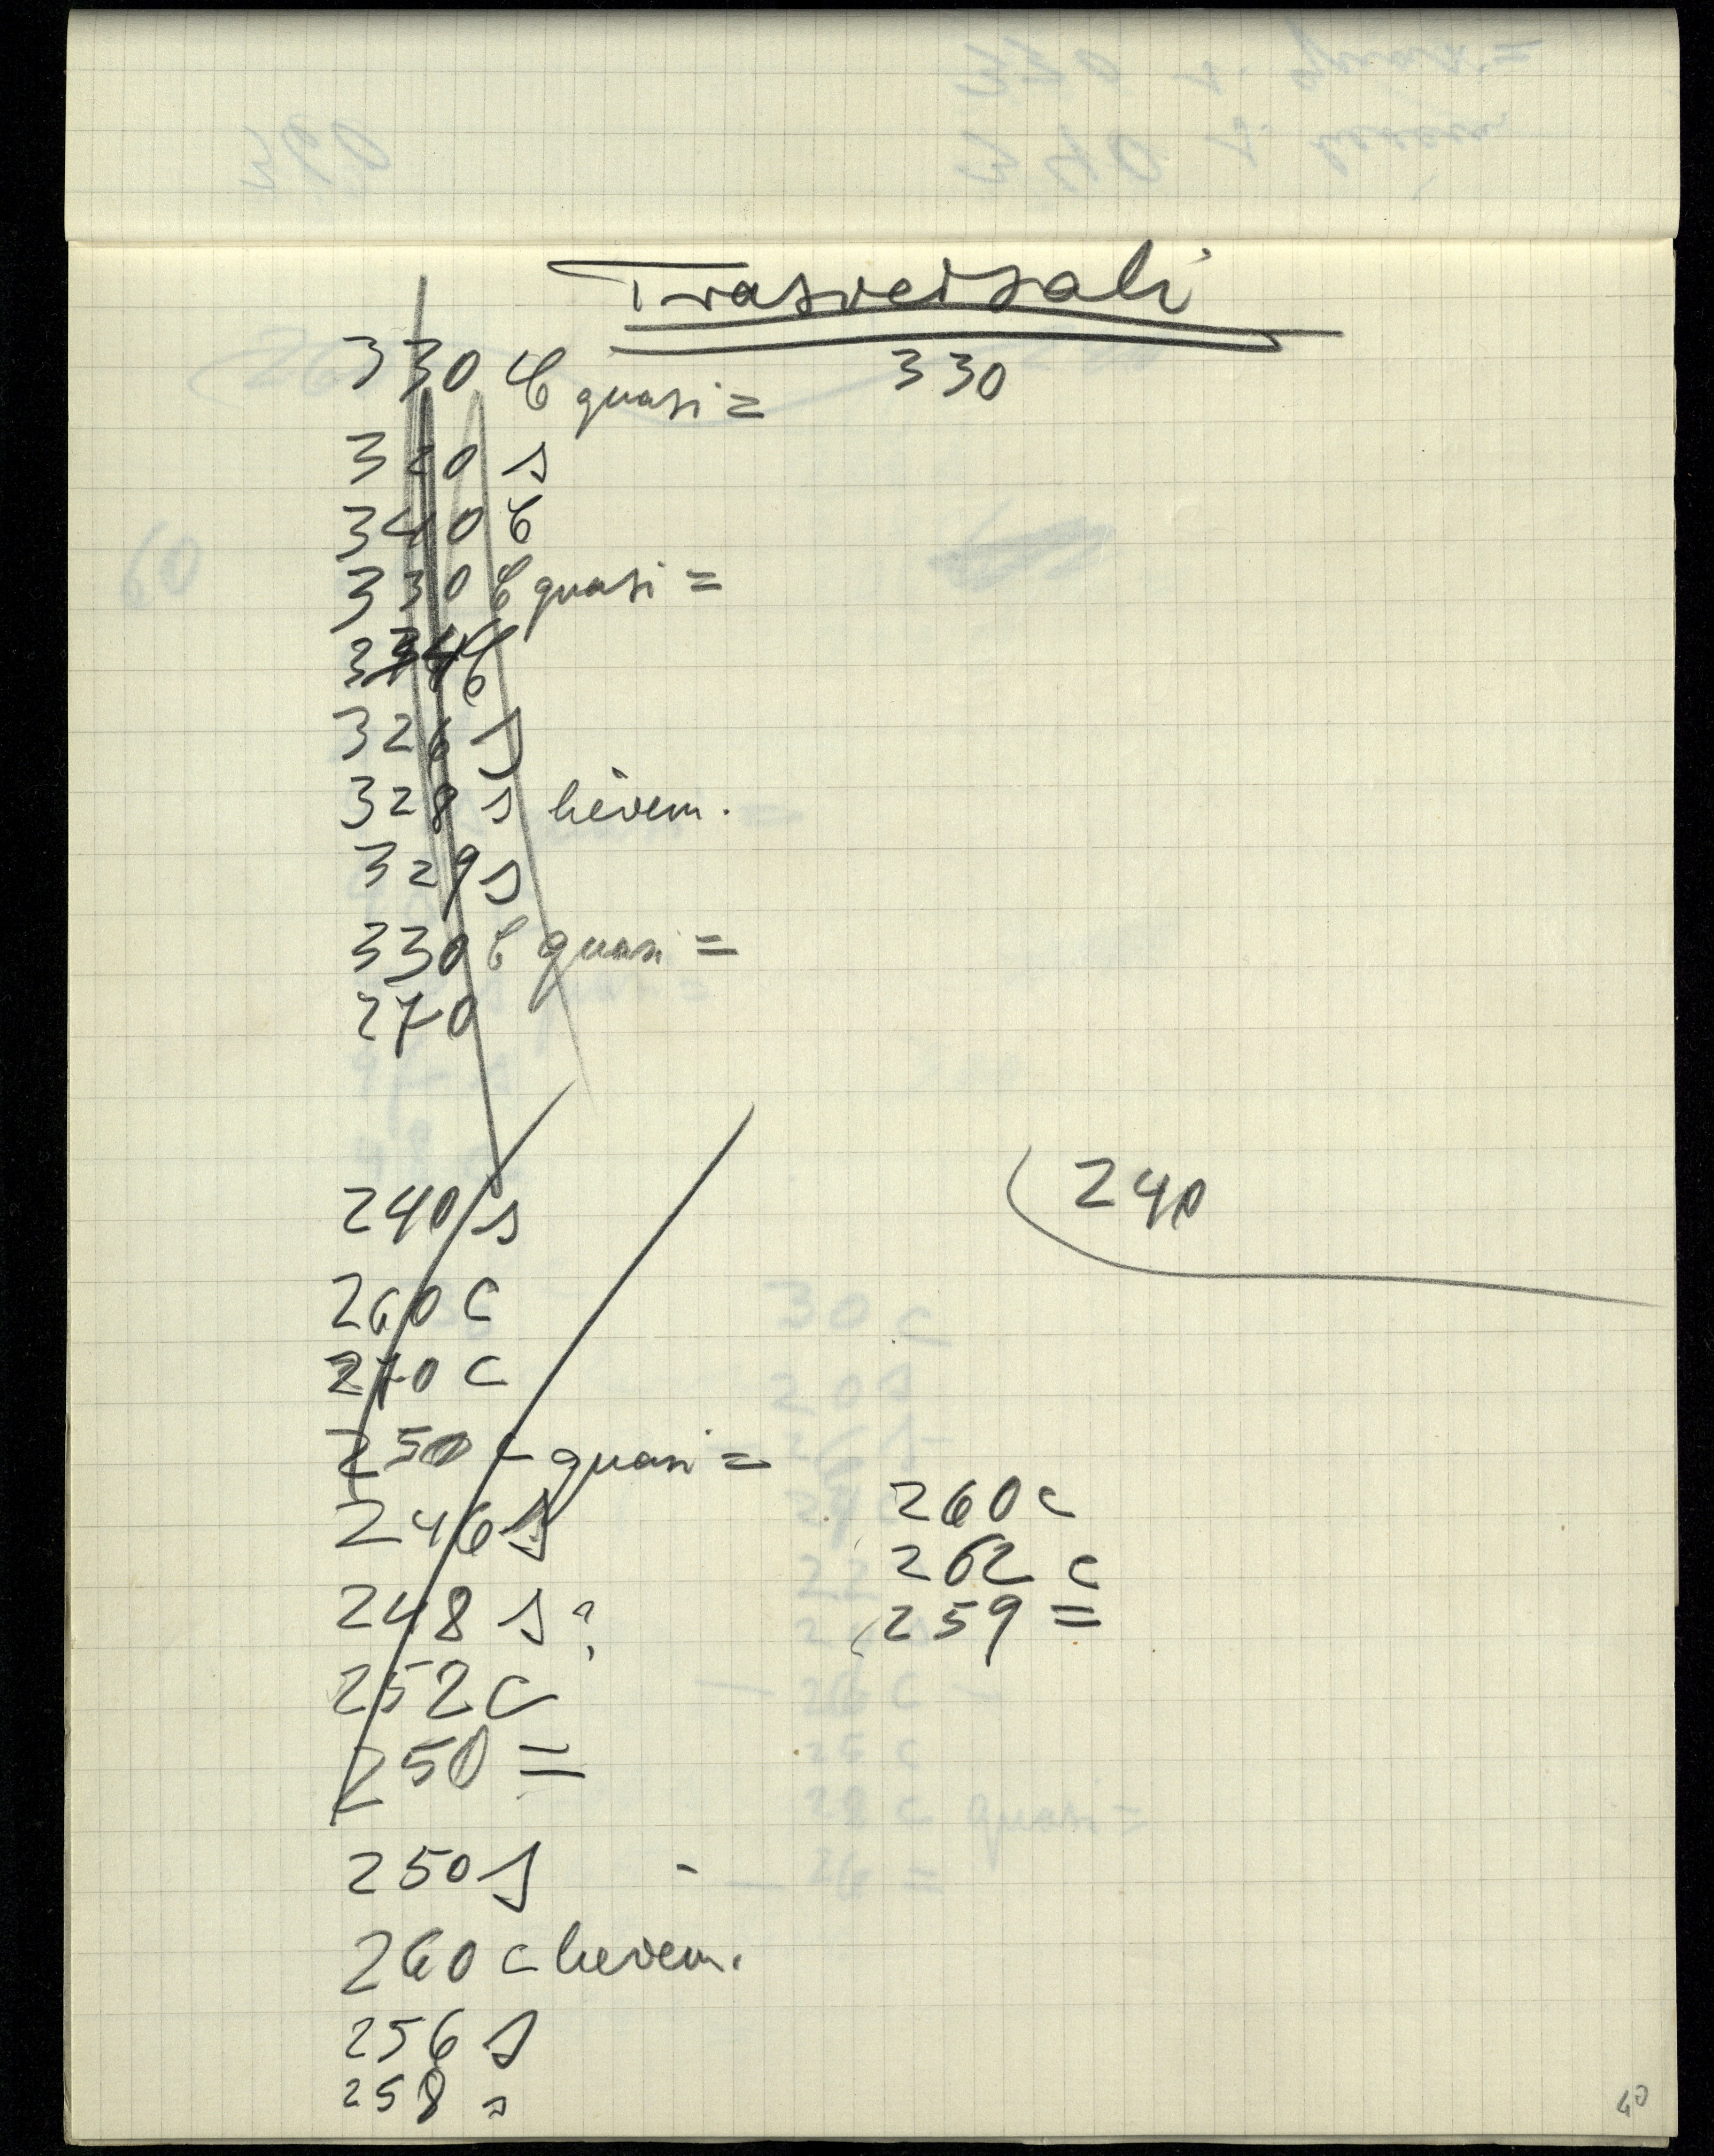 Trasversali
330 C quasi = 330
320 s
340 C
330 C quasi =
326 s
328 s lievem.
329 s
330 C quasi =
270
240 s
240
260 c
270 c
250 c quasi =
246 s
248 s ?
252 c
250 =
260 c
262 c
259 =
250 s -
260 c lievem.
256 s
258 s
40